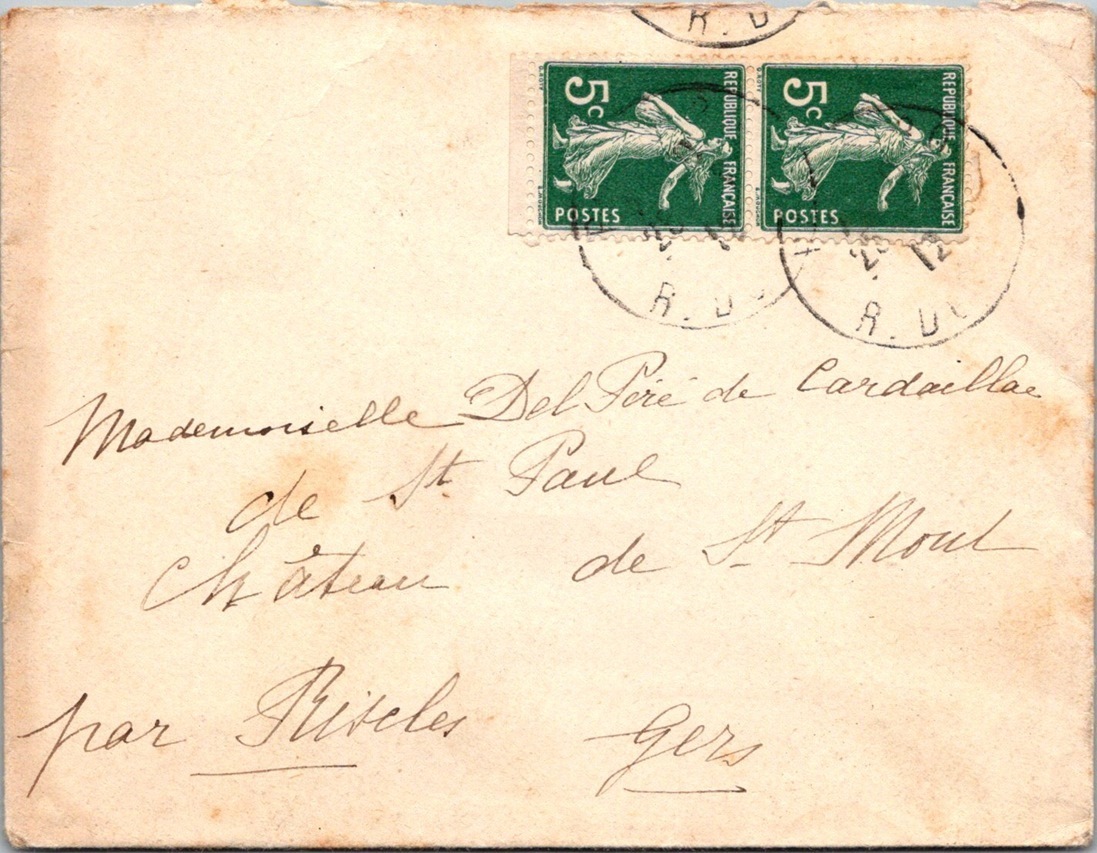 R. D
5c
REPUBLIQUE FRANÇAISE
POSTES
5c
REPUBLIQUE FRANÇAISE
POSTES
R. D
R. DU
Mademoiselle Del Péré de Cardaillac
de St Paul
Château de St Mont
par Riscles Gers